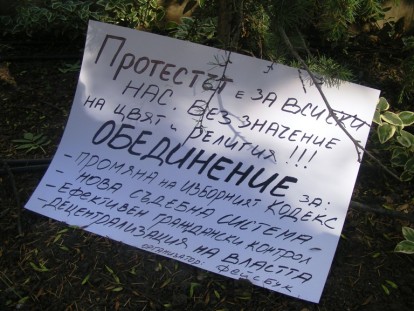 ПРОТЕСТЪТ Е ЗА ВСИЧКИ
НАС. БЕЗ ЗНАЧЕНИЕ
НА ЦВЯТ И РЕЛИГИЯ!!!
ОБЕДИНЕНИЕ ЗА:
- ПРОМЯНА НА ИЗБОРНИЯТ КОДЕКС
- НОВА СЪДЕБНА СИСТЕМА -
- ЕФЕКТИВЕН ГРАЖДАНСКИ КОНТРОЛ
- ДЕЦЕНТРАЛИЗАЦИЯ НА ВЛАСТТА
ОРГАНИЗАТОР: ФЕЙСБУК.